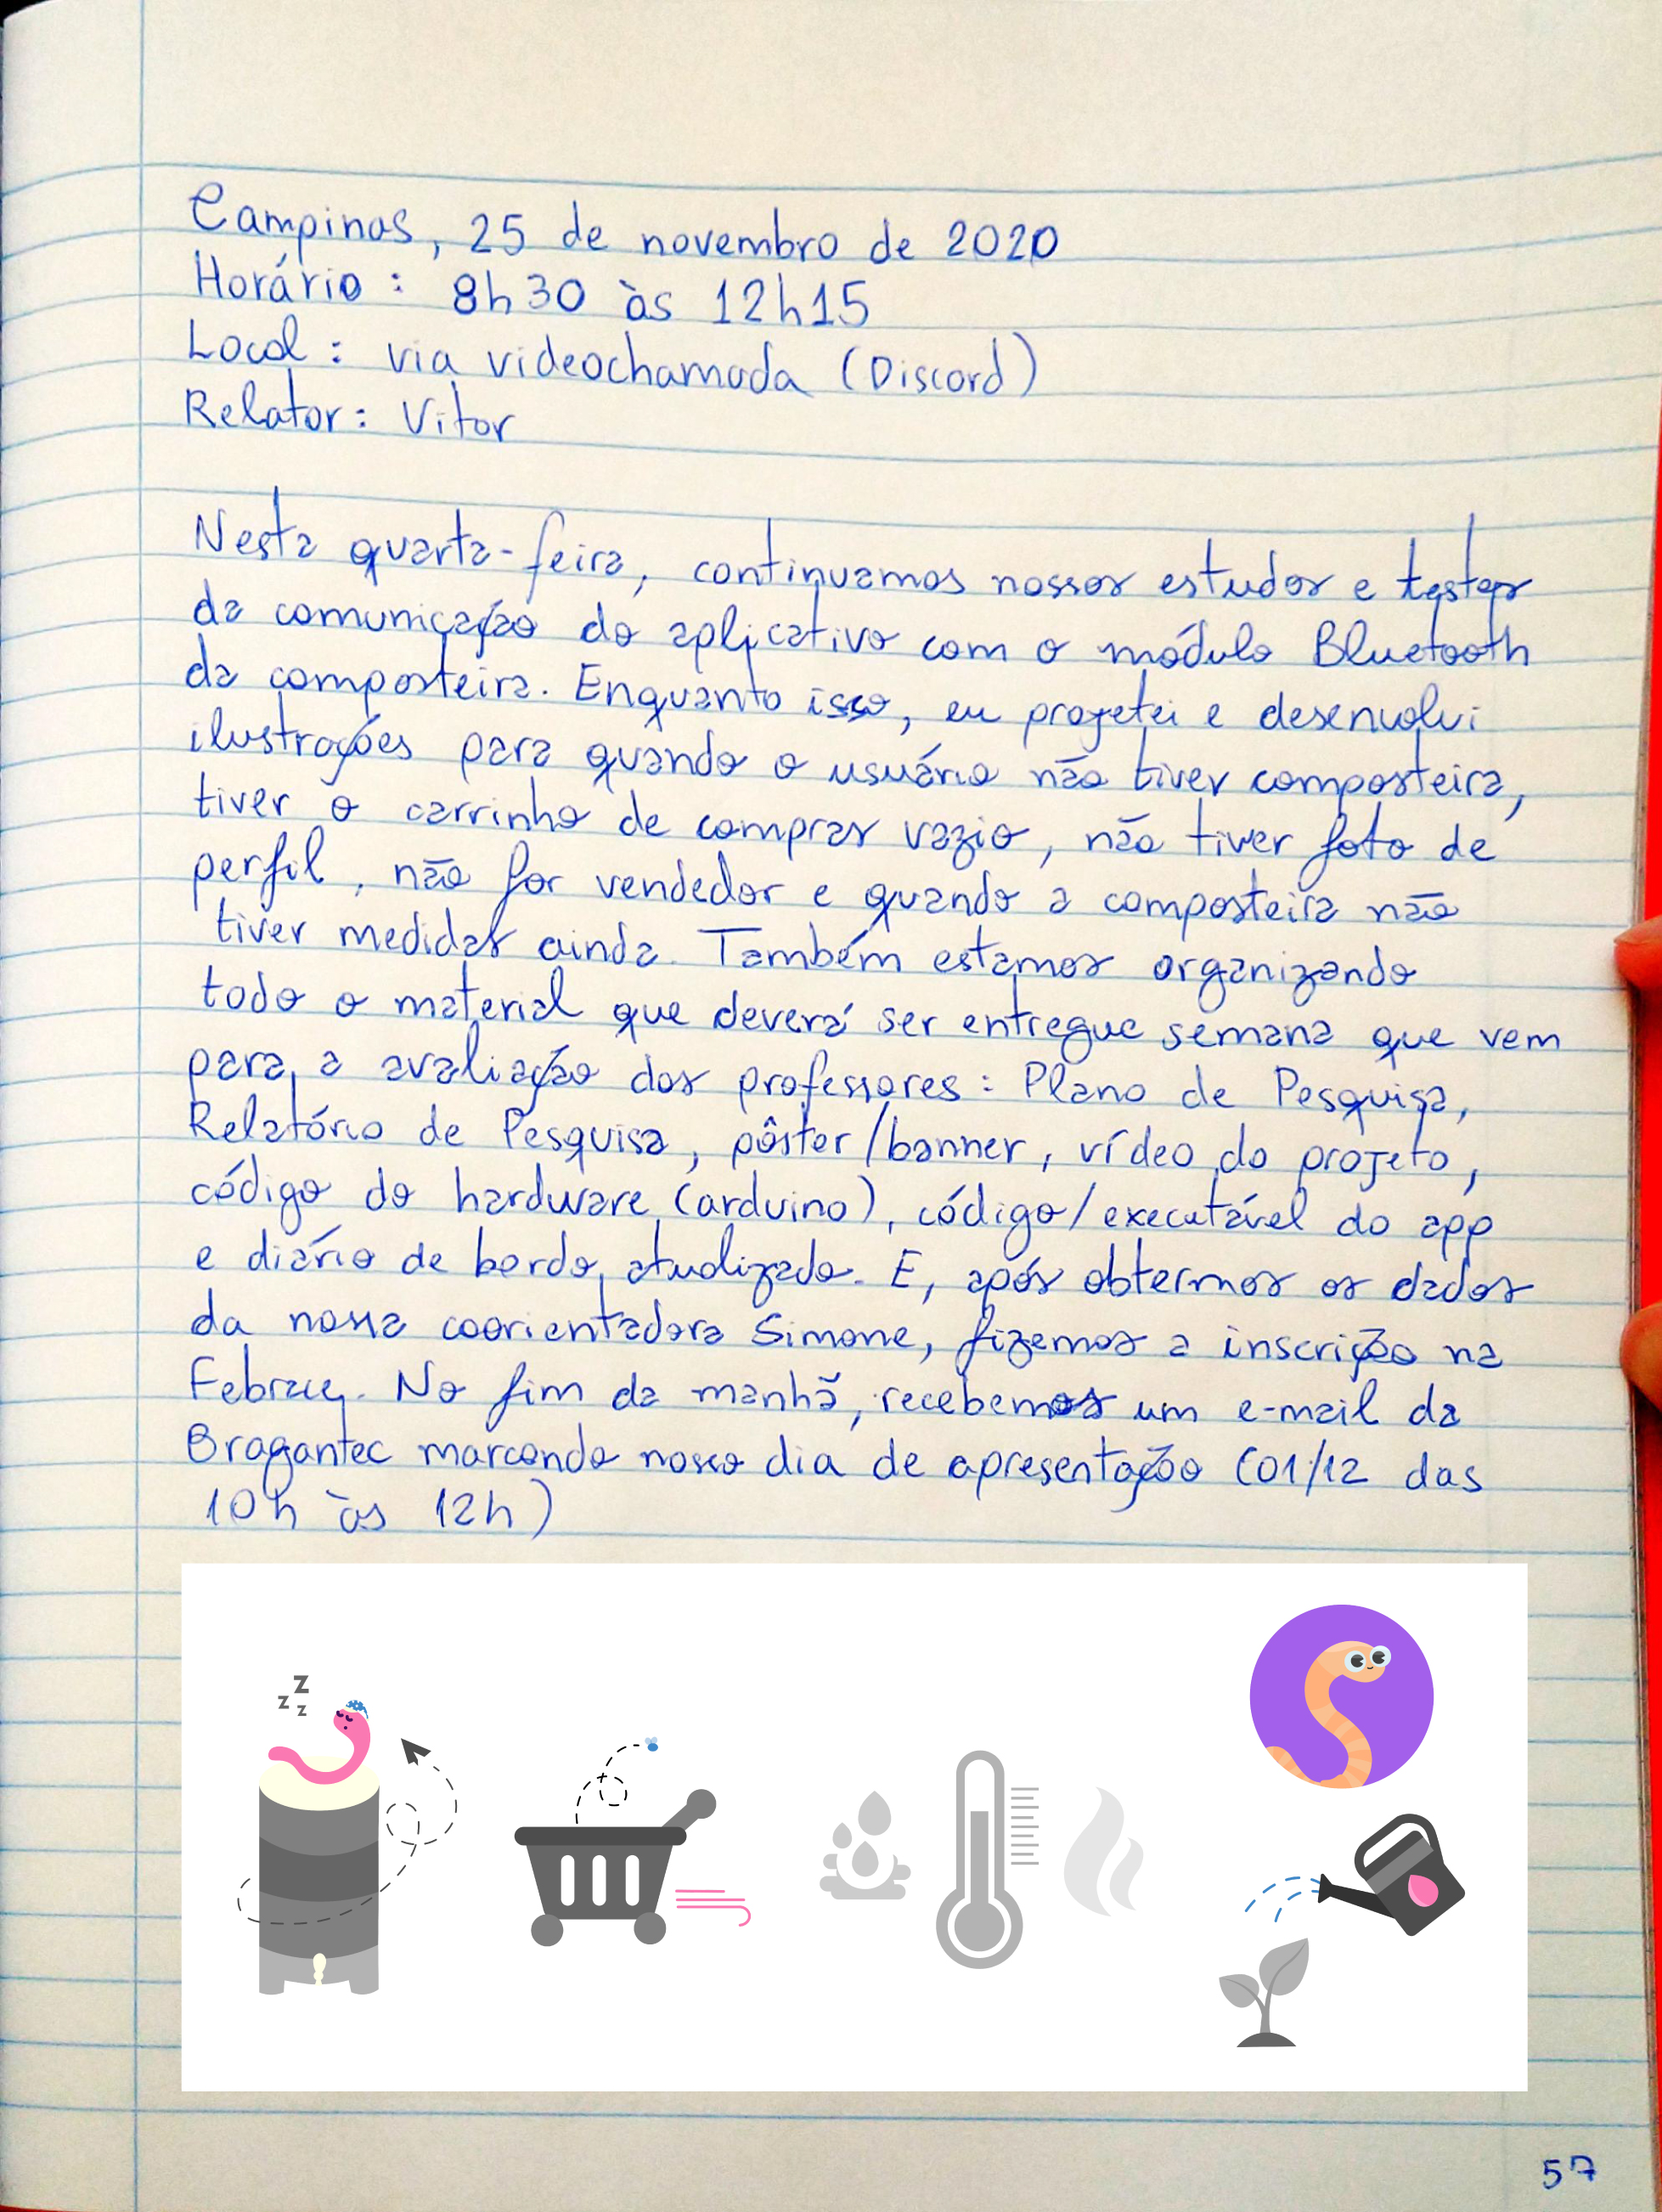 Campinas, 25 de novembro de 2020
Horário: 8h30 às 12h15
Local: via videochamada (Discord)
Relator: Vitor
Nesta quarta-feira, continuamos nossos estudos e testes
da comunicação do aplicativo com o módulo Bluetooth
da composteira. Enquanto isso, eu projetei e desenvolvi
ilustrações para quando o usuário não tiver composteira,
tiver o carrinho de compras vazio, não tiver foto de
perfil, não for vendedor e quando a composteira não
tiver medidas ainda. Também estamos organizando
todo o material que deverá ser entregue semana que vem
para a avaliação dos professores: Plano de Pesquisa,
Relatório de Pesquisa, pôster/banner, vídeo do projeto,
código do hardware (arduino), código/executável do app
e diário de bordo atualizado. E, após obtermos os dados
da nossa coorientadora Simone, fizemos a inscrição na
Febrace. No fim da manhã, recebemos um e-mail da
Bragantec marcando nosso dia de apresentação (01/12 das
10h às 12h)
z z z
57